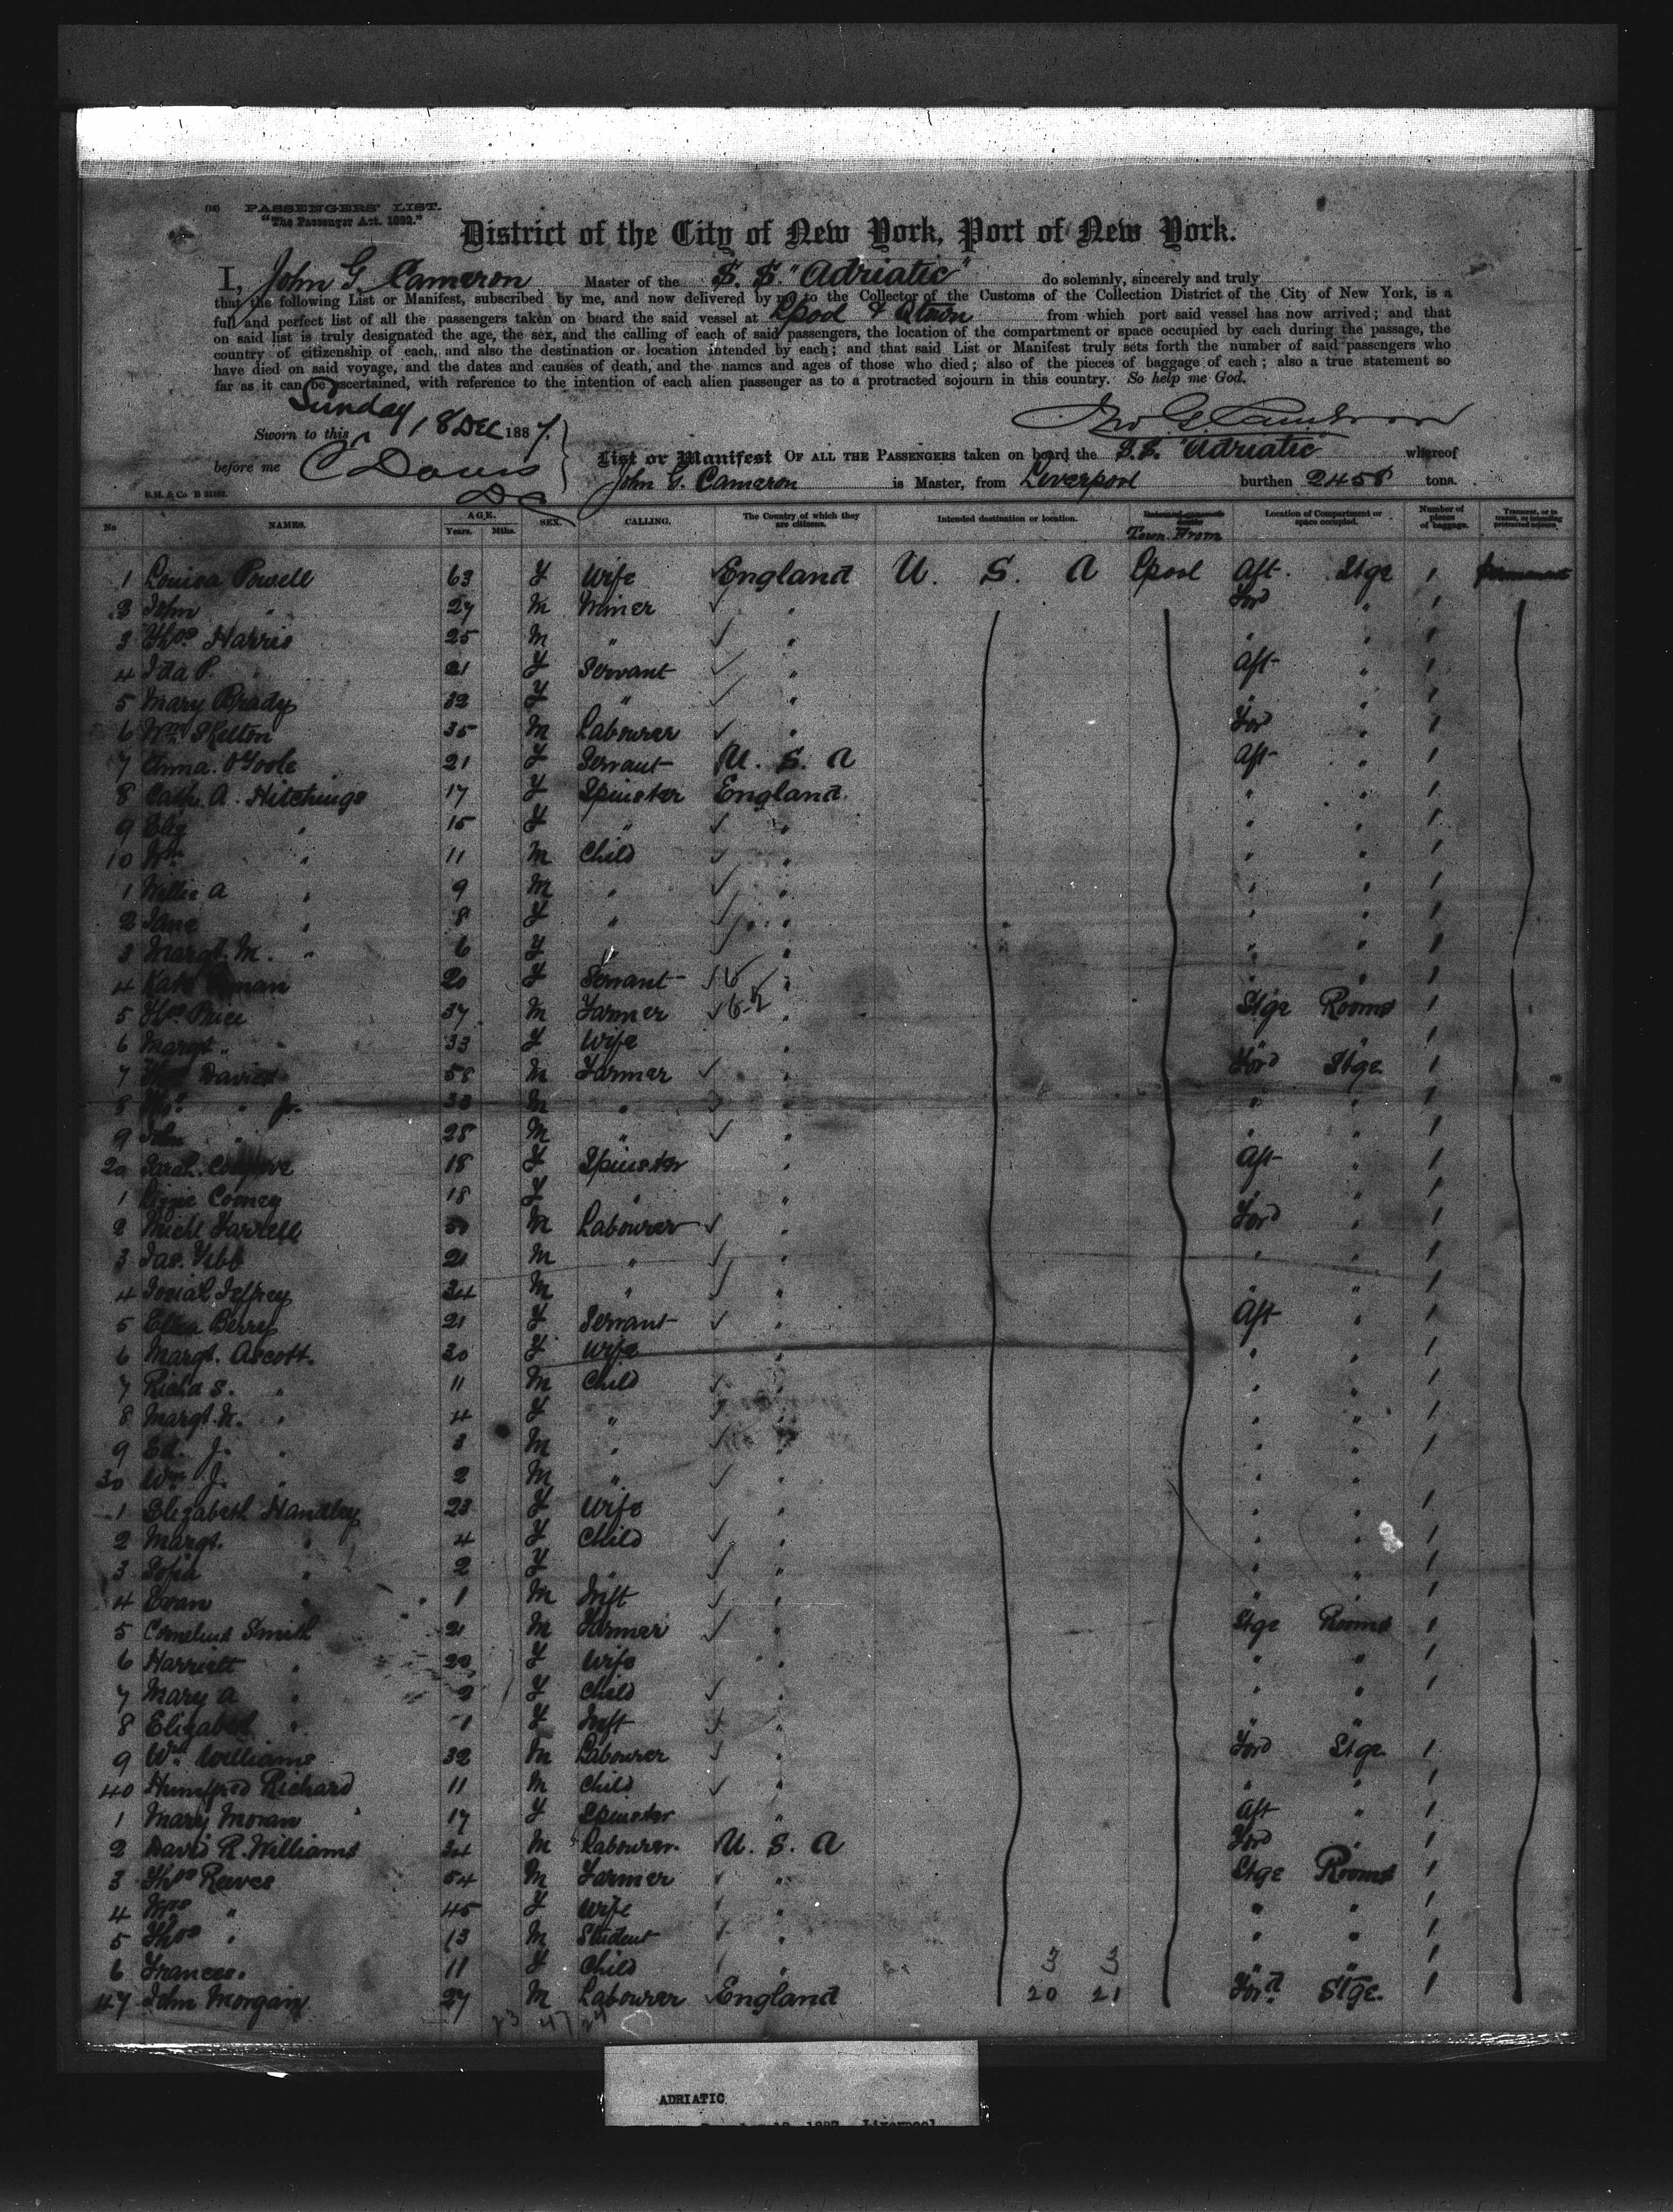 (13) PASSENGERS' LIST.
"The Passenger Act. 1882."
District of the City of New York, Port of New York.
I, John G. Cameron Master of the S. S. "Adriatic" do solemnly, sincerely and truly
that the following List or Manifest, subscribed by me, and now delivered by me to the Collector of the Customs of the Collection District of the City of New York, is a
full and perfect list of all the passengers taken on board the said vessel at Lpool & Qtown from which port said vessel has now arrived; and that
on said list is truly designated the age, the sex, and the calling of each of said passengers, the location of the compartment or space occupied by each during the passage, the
country of citizenship of each, and also the destination or location intended by each; and that said List or Manifest truly sets forth the number of said passengers who
have died on said voyage, and the dates and causes of death, and the names and ages of those who died; also of the pieces of baggage of each; also a true statement so
far as it can be ascertained, with reference to the intention of each alien passenger as to a protracted sojourn in this country. So help me God.
Sunday
Sworn to this 18 Dec 1887. Jno G Cameron
before me List or Manifest OF ALL THE PASSENGERS taken on board the S.S. "Adriatic" whereof
John G. Cameron is Master, from Liverpool burthen 2458 tons.
No NAMES. AGE. Years. Mths. SEX. CALLING. The Country of which they are citizens. Intended destination or location. Town From Location of Compartment or space occupied. Number of pieces of baggage. Transient, or in transit, or intending protracted sojourn.
1 Louisa Powell 63 F Wife England U. S. A Lpool Aft. Stge 1 permanent
2 John " 27 M Miner " Ford " 1
3 Thos Harris 25 M " " " " 1
4 Ida P. " 21 F Servant " Aft " 1
5 Mary Brady 32 F " " " " 1
6 Wm Skelton 35 M Labourer " Ford " 1
7 Anna O'Toole 21 F Servant U. S. A Aft " 1
8 Cath. A. Hitchings 17 F Spinster England " " 1
9 Eliz " 15 F " " " " 1
10 Wm " 11 M Child " " " 1
1 Willie A " 9 M " " " " 1
2 Jane " 8 F " " " " 1
3 Margt. M. " 6 F " " " " 1
4 Kate 20 F Servant " " " 1
5 Thos Price 37 M Farmer " Stge Rooms 1
6 Margt " 33 F Wife " " " 1
7 Davies 58 M Farmer " Ford Stge 1
8 Thos " Jr. 33 M " " " " 1
9 John " 28 M " " " " 1
20 Sarah 18 F Spinster " Aft " 1
1 Lizzie Cooney 18 F " " " " 1
2 Michl Farrell M Labourer " Ford " 1
3 Jas. 21 M " " " " 1
4 Josiah Jeffrey 34 M " " " " 1
5 Ellen Berry 21 F Servant " Aft " 1
6 Margt. Ascott. 30 F Wife " " " 1
7 Richd S. " 11 M Child " " " 1
8 Margt. " 4 F " " " " 1
9 Ed. J. " 3 M " " " " 1
30 Wm J. " 2 M " " " "
1 Elizabeth Handley 23 F Wife " " " 1
2 Margt. " 4 F Child " " " 1
3 Sofia " 2 F " " " " 1
4 Evan " 1 M Inft " " " 1
5 Cornelius Smith 21 M Farmer " Stge Rooms 1
6 Harriett " F Wife " " " 1
7 Mary A " 2 F Child " " " 1
8 Elizabeth " 1 F Inft " " "
9 Wm Williams 32 M Labourer " Ford Stge 1
40 Richard 11 M Child " " " 1
1 Mary Moran 17 F Spinster " Aft " 1
2 David R. Williams 34 M Labourer U. S. A Ford " 1
3 Thos Reeves 54 M Farmer " Stge Rooms 1
4 Mrs " 45 F Wife " " " 1
5 Thos " 13 M Student " " " 1
6 Frances. 11 F Child " 3 3 " " 1
47 John Morgan 27 M Labourer England 20 21 Ford Stge. 1
ADRIATIC